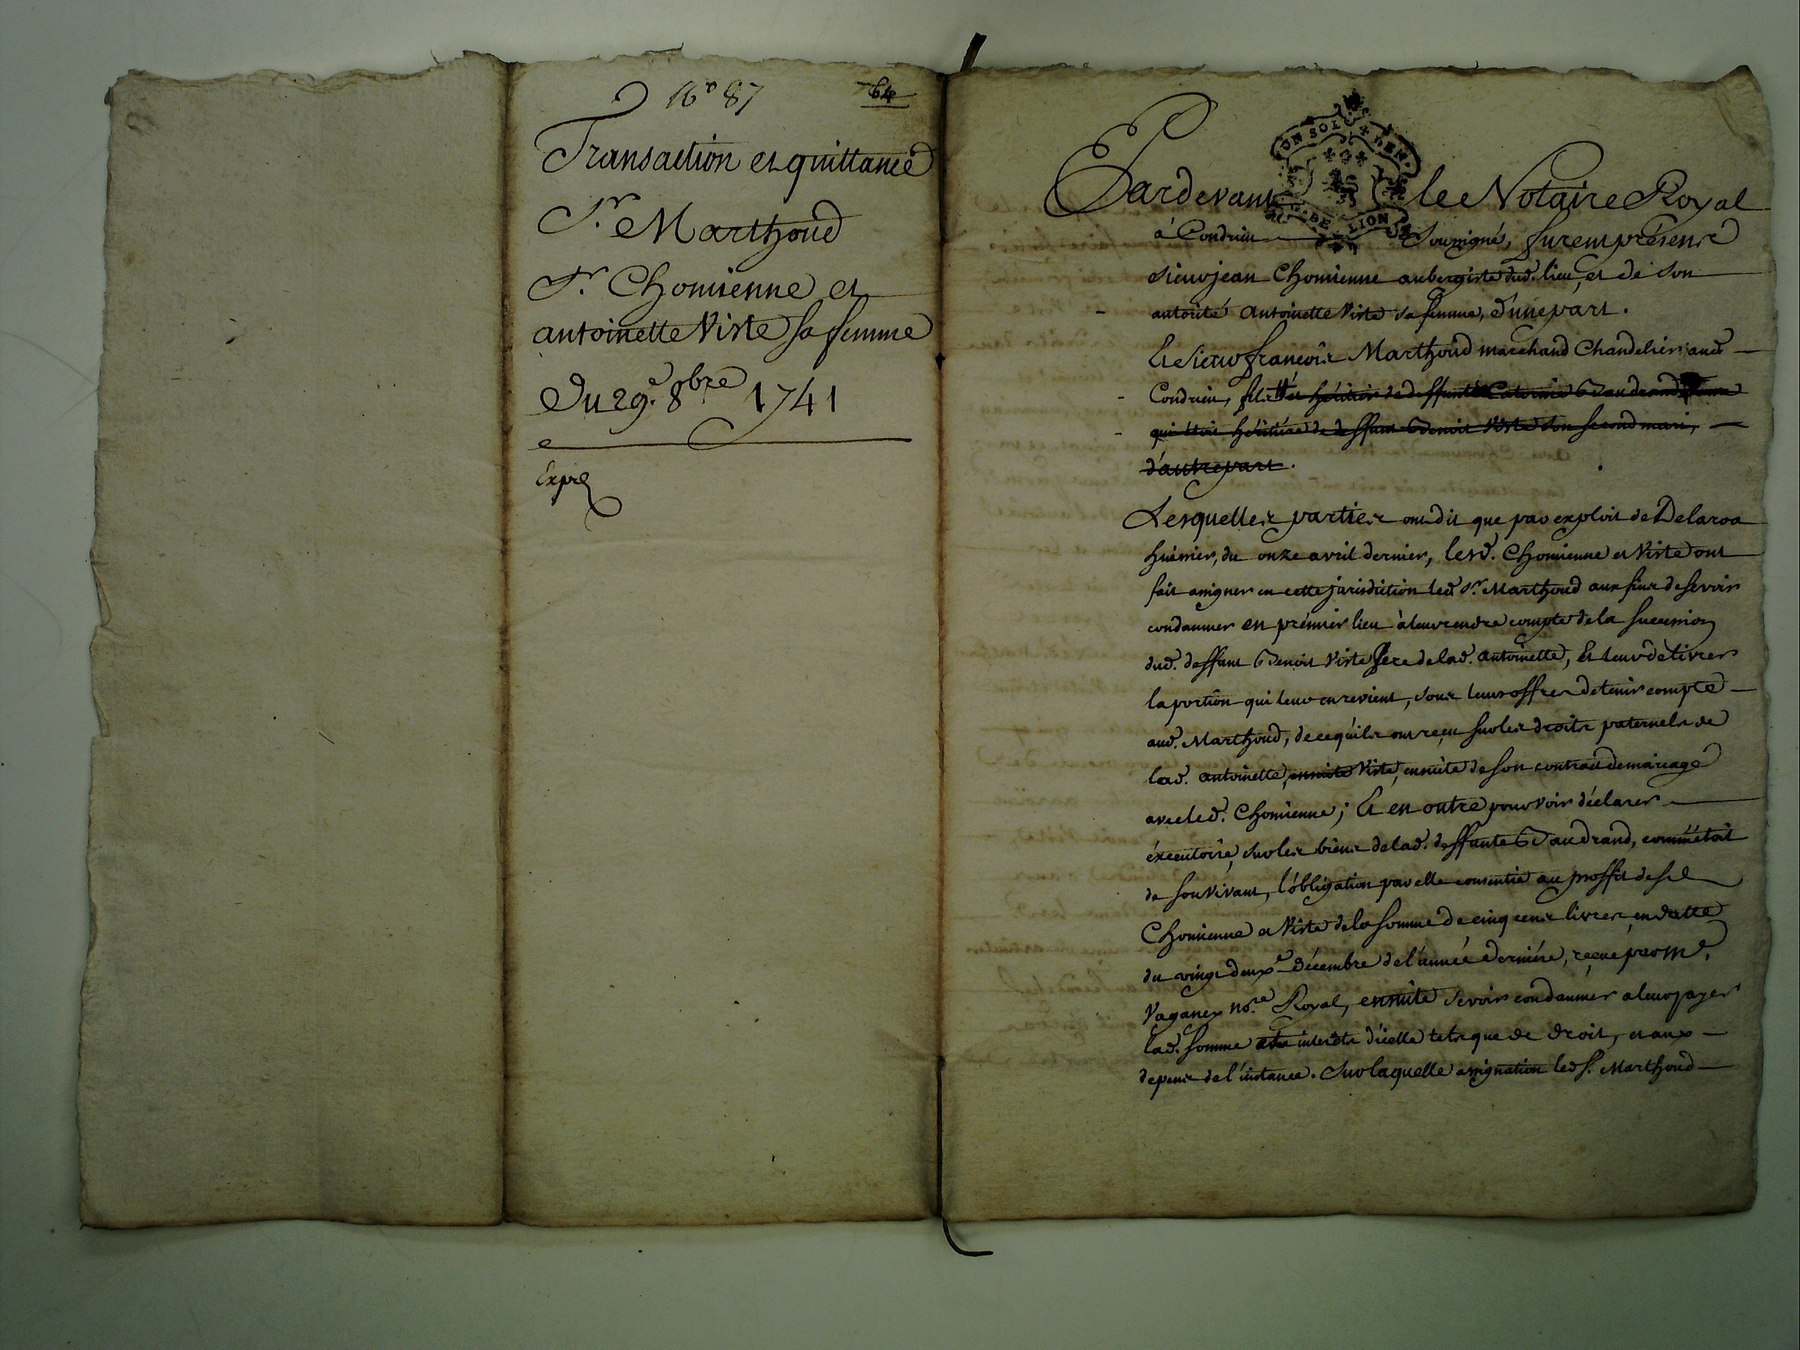 16 87
64
Transaction et quittance
Sr. Marthoud
Sr. Chomienne et
antoinette Viste sa femme
Du 29e. 8bre 1741
Expé
Pardevant le Notaire Royal
à Condrieu soussigné, furent présents
sieur jean Chomienne aubergiste dud. lieu, et de son
autorité Antoinette Viste sa femme, d'une part.
Et sieur françois Marthoud marchand Chandelier aud.
Condrieu, fils et héritier de deffunte Caterine Baudrand
qui étoit héritière de deffunt Benoit Viste son second mari,
d'autre part.
Lesquelles parties ont dit que par exploit de Delaroa
huissier, du onze avril dernier, lesd. Chomienne et Viste ont
fait assigner en cette jurisdiction led. Sr. Marthoud aux fins de se voir
condamner en prémier lieu à leur rendre compte de la succession
dud. deffunt Benoit Viste Pere de lad. antoinette, Et leur délivrer
la portion qui leur en revient, sous leurs offres de tenir compte
aud. Marthoud, de ce qu'ils ont reçu sur les droits paternels de
lad. antoinette ensuite Viste, ensuite de son contract de mariage
avec led. Chomienne; Et en outre pour voir déclarer
éxécutoire, sur les biens de lad. deffunte Baudrand, comme étoit
de son vivant, l'obligation par elle consentie au proffit desd.
Chomienne et Viste de la somme de cinq cens livres, en datte
du vingt deuxe. Décembre de l'année derniére, reçue par Me.
Vaganey nore. Royal, ensuite se voir condamner a leur payer
lad. somme interêts d'icelle tels que de droit, et aux
depens de l'instance. sur laquelle assignation led. Sr. Marthoud